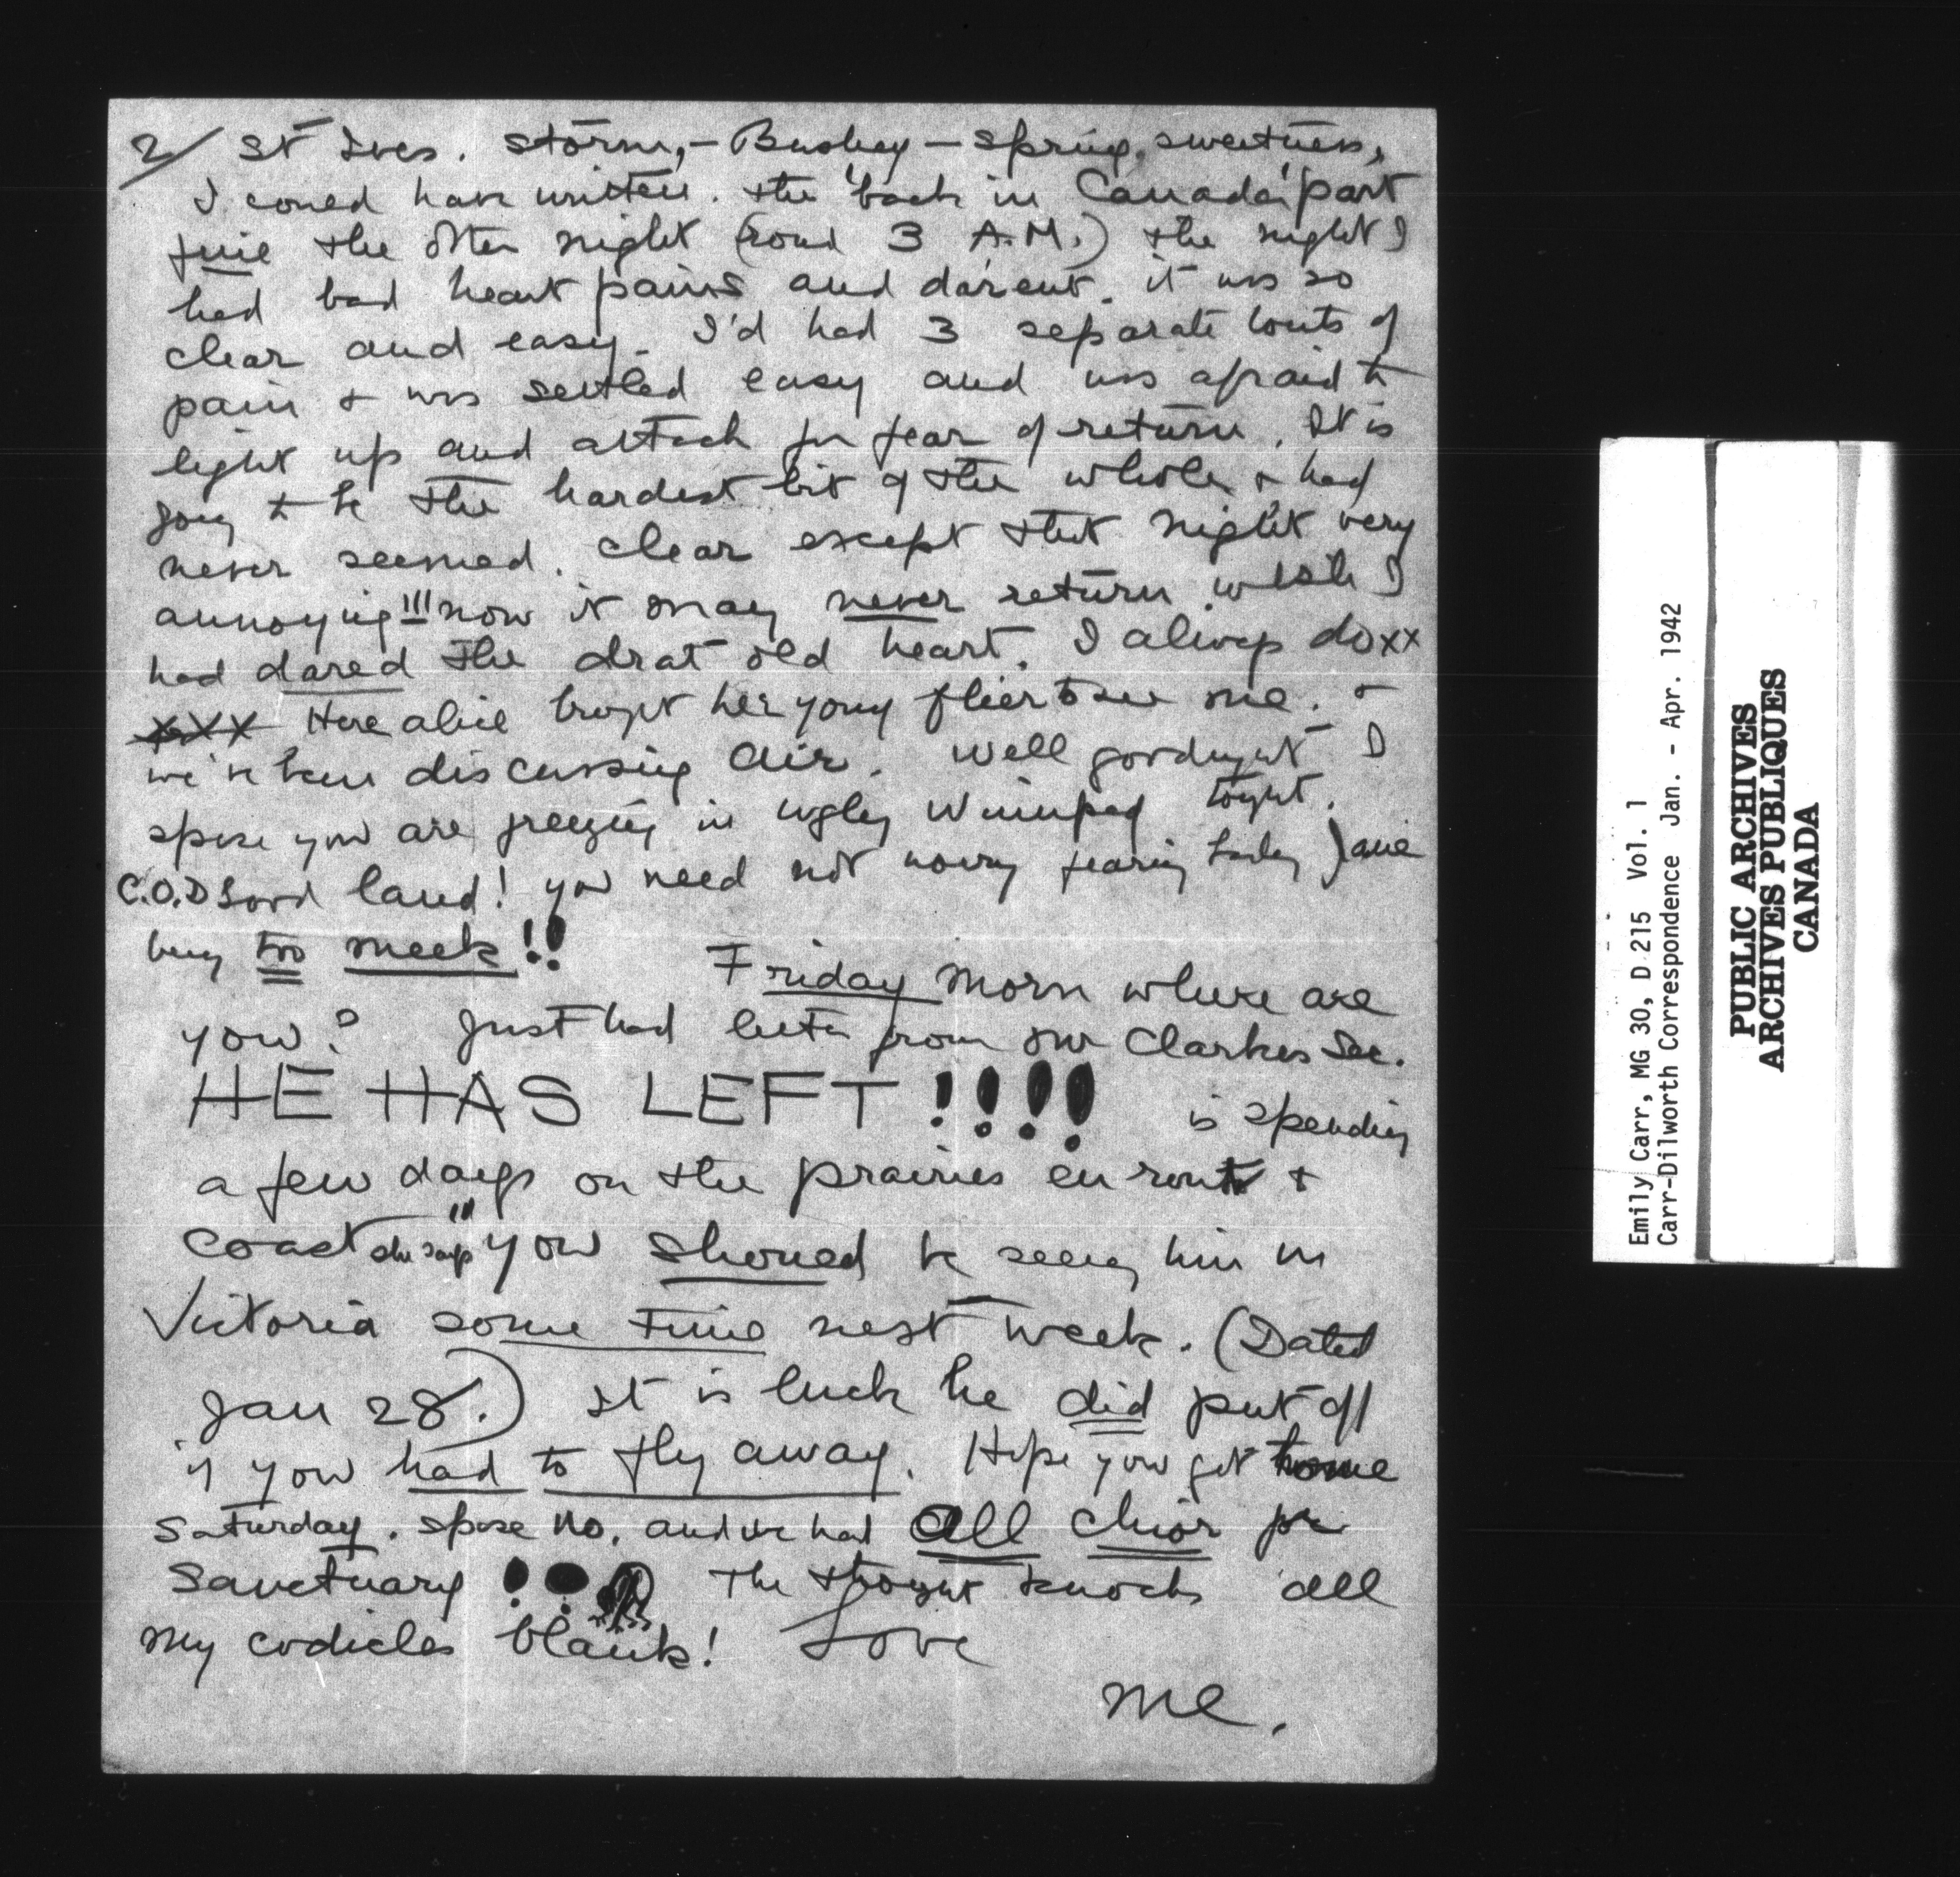 2/ St Ives. storm,- Bushey - spring, sweetness,
I coued have written. the 'back in Canada' part
fine the other night (roud 3 A.M.) the night I
had bad heart pains and darent. it was so
clear and easy. I'd had 3 separate bouts of
pain & was settled easy and was afraid to
light up and attack for fear of return. It is
going to be the hardest bit of the whole, & had
never seemed. clear except that night very
annoying!!! now it may never return. wish I
had dared the drat old heart. I always do xx
xxx Here alice brought her young flier to see me. &
we've been discussing air. Well goodnight I
spose you are freezing in ugly Winnipeg tonight.
C.O.D Lord land! you need not worry Jane
being too meek!!
Friday morn where are
you? Just had letter from our Clarkes Sec.
HE HAS LEFT!!!! is spending
a few days on the prairies en route to
Coast she says "you shoued be seeing him in
Victoria some time next week. (Dated
Jan 28.) It is luck he did put off
if you had to fly away. Hope you get home
Saturday. spose no. and we had all chior for
Sanctuary !! The thought knocks all
my codicles blank! Love
me.
Emily Carr, MG 30, D 215 Vol. 1
Carr-Dilworth Correspondence Jan. - Apr. 1942
PUBLIC ARCHIVES
ARCHIVES PUBLIQUES
CANADA